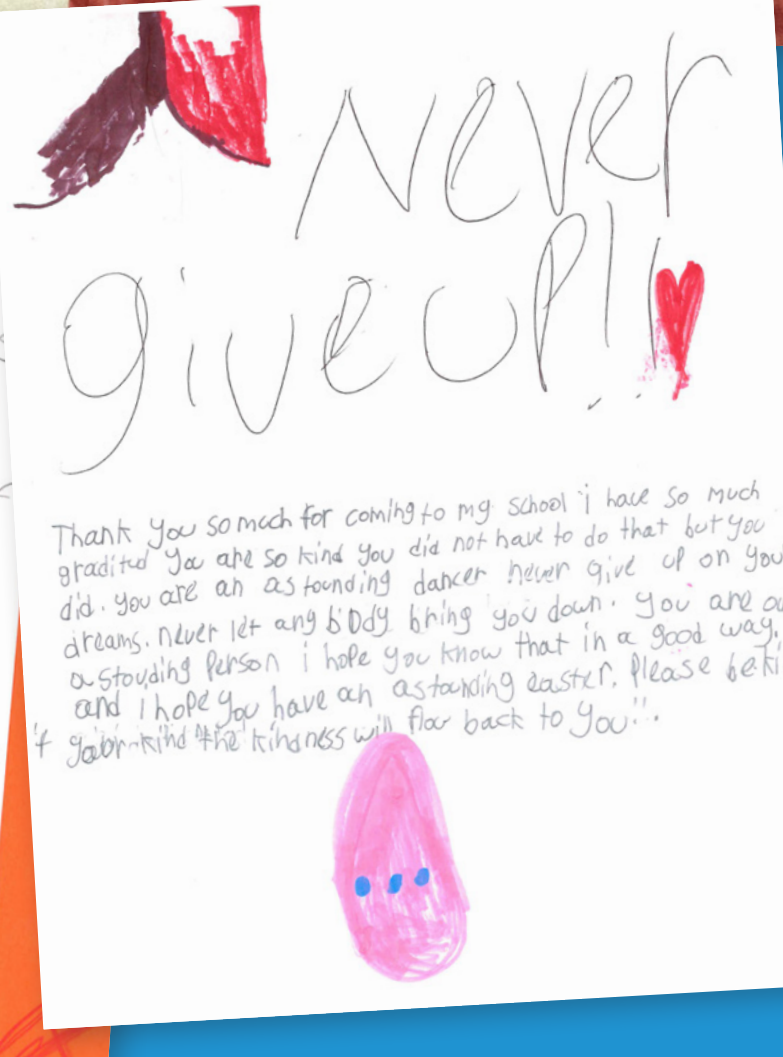 Never
give up!!
Thank you so much for coming to my school i have so much
gradited you are so kind you did not have to do that but you
did. you are an astounding dancer never give up on you
dreams. never let anybody bring you down. you are
astouding person i hope you know that in a good way.
and i hope you have an astounding easter. Please be ki
if kind the kindness will flow back to you!!.